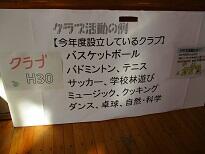 クラブ活動の例
【今年度設立しているクラブ】
クラブ
H30
バスケットボール
バドミントン、テニス
サッカー、学校林遊び
ミュージック、クッキング
ダンス、卓球、自然・科学